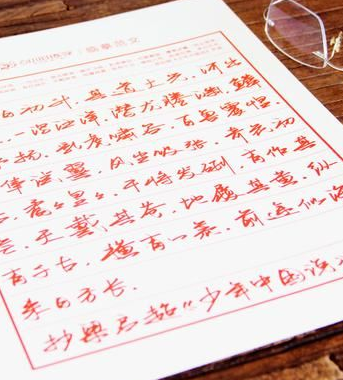 临摹范文
日初升,其道大光。河出
一泻汪洋,潜龙腾渊,鳞
飞扬,乳虎啸谷,百兽震惶,
隼试翼,风尘吸张,奇花初
矞々皇々,干将发硎,有作其
芒,天戴其苍,地履其黄,纵
有千古,横有八荒,前途似海
来日方长.
抄梁启超《少年中国说